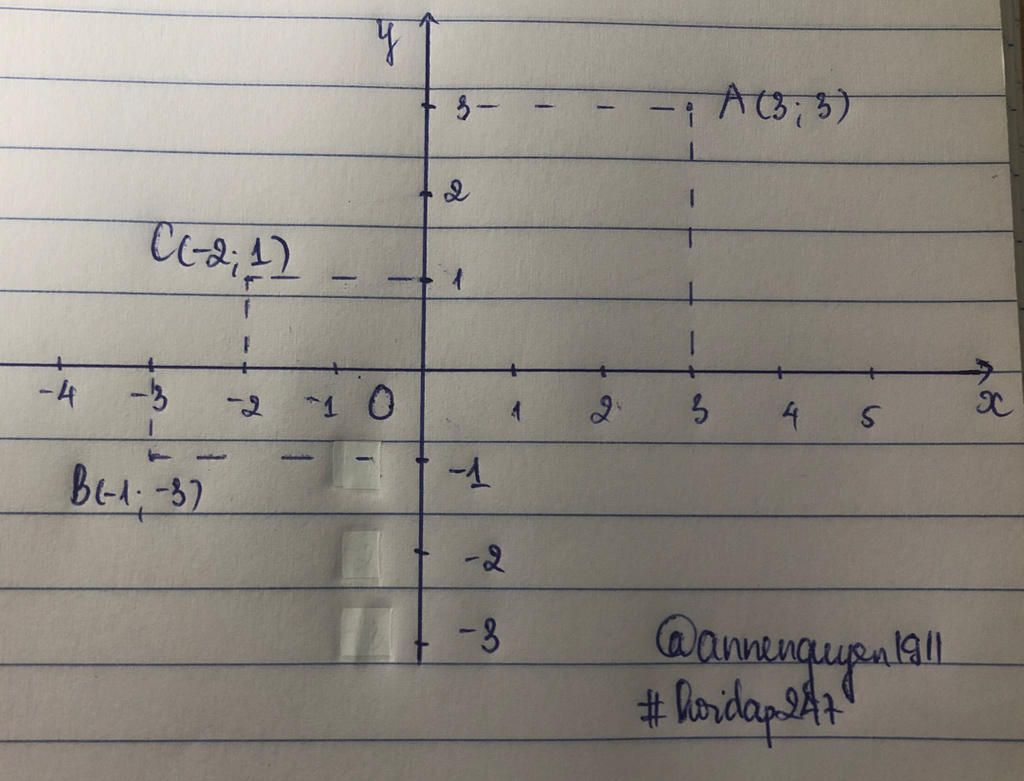 y
3 A(3; 3)
2
C(-2; 1)
1
-4 -3 -2 -1 O 1 2 3 4 5 x
-1
B(-1; -3)
-2
-3
@annenguyen1911
#hoidap247